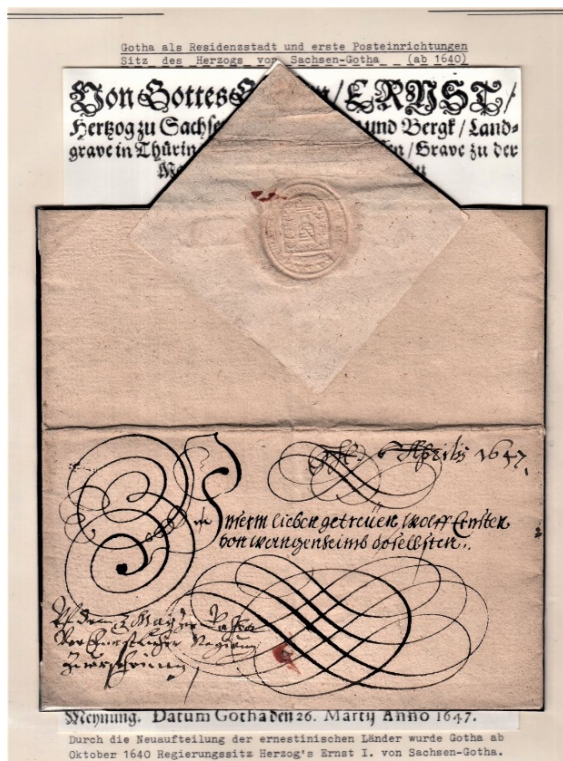 Gotha als Residenzstadt und erste Posteinrichtungen
Sitz des Herzogs von Sachsen-Gotha (ab 1640)
Von Gottes / ERNST /
Hertzog zu Sachse und Bergk / Land-
grave in Thürin / Grave zu der
6 Aprilis 1647.
Unserm lieben getreüen Wolff Ernsten
von Wangenheimb doselbsten.
Meynung. Datum Gotha den 26. Martij Anno 1647.
Durch die Neuaufteilung der ernestinischen Länder wurde Gotha ab
Oktober 1640 Regierungssitz Herzog's Ernst I. von Sachsen-Gotha.